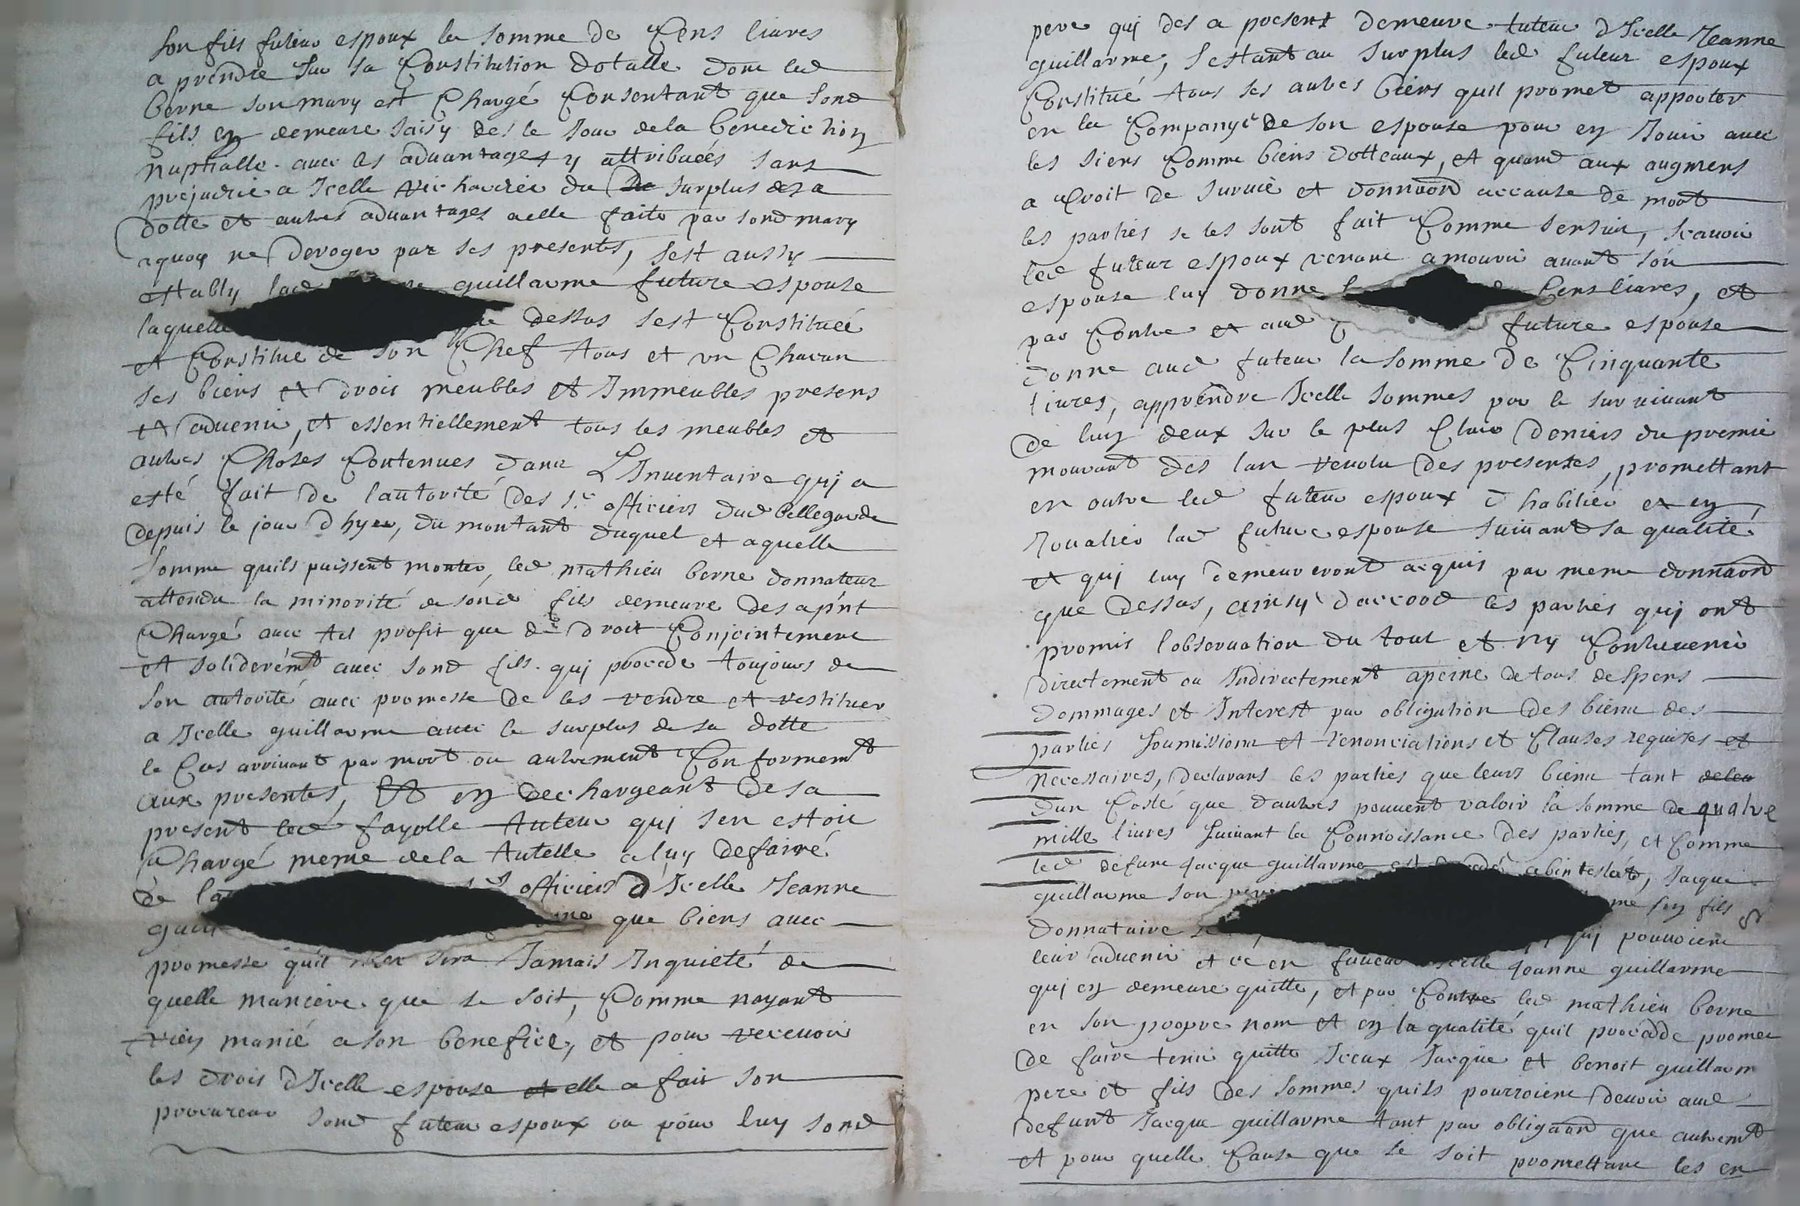 son fils futeur espoux la somme de Cens livres
a prendre sur sa Constitution dotalle dont led
berne son mary est Chargé Consentant que sond
fils en demeure saisy des le jour de la benediction
nuptialle avec les advantages y attribueés sans
prejudice a Icelle du surplus de sa
dotte et autres advantages a elle faits par sond mary
a quoy ne deroger par ses presentes, sest aussy
estably lad guillarme future espouse
laquelle que dessus sest Constitueé
et Constitue de son Chef tous et un Chacun
ses biens et drois meubles et Immeubles presens
et advenir, et essentiellement tous les meubles et
autres Choses Contenues dans L'Inventaire qui a
esté fait de lautorité des Srs officiers dud bellegarde
depuis le jour d hyer, du montant duquel et a quelle
somme quils puissent monter, led mathieu berne donnateur
attendu la minorité de sond fils demeure des apnt
Chargé avec tel profit que de droit Conjointement
et soliderémt avec sond fils qui procede toujours de
son autorité avec promesse de les rendre et restituer
a Icelle guillarme avec le surplus de sa dotte
le Cas arrivant par mort ou autrement Conformemt
aux presentes, Et en dechargeant de sa
present led fayolle tuteur qui sen estoit
Chargé meme de la tutelle a luy deferré
de officiers d'Icelle Jeanne
que biens avec
promesse quil sera Jamais Inquieté de
quelle maniere que se soit, Comme nayant
rien manié a son benefice, et pour recevoir
les drois d'Icelle espouse et elle a fait son
procureur sond futeur espoux ou pour luy sond
pere qui des a present demeure tuteur d'Icelle Jeanne
guillarme, sestant au surplus led futeur espoux
Constitué tous ses autres biens quil promet apporter
en la Companyé de son espouse pour en Jouir avec
les siens Comme biens dotteaux, et quand aux augmens
a Croit de survie et donnaon accause de mort
les parties se les sont fait Comme sensuit, scavoir
led futeur espoux venant a mourir avant son
espouse luy donne Cens livres, et
par Contre et aud future espouse
donne aud futeur la somme de Cinquante
livres, apprendre Icelle sommes par le survivant
de luy deux sur le plus Clair deniers du premie
mourant des lan revolu des presentes, promettant
en outre led futeur espoux d habilier et en
Joualier lad future espouse suivant sa qualité,
et qui luy demeureront acquis par meme donnaon
que dessus, ainsy d'accord les parties qui ont
promis l'observation du tout et ny Contrevenir
directement ou Indirectement apeine de tous despens
dommages et Interest par obligation des biens des
parties soumissions et renonciations et Clauses requises et
necessaires, declarans les parties que leurs biens tant de leu
dun Costé que dautres peuvent valoir la somme de quatre
mille livres suivant la Connoissance des parties, et Comme
led defunt Jacque guillarme est abintestat, Jacque
guillarme son me son fils
donnataire qui pouvoient
leur advenir et ce en faveur d'Icelle Jeanne guillarme
qui en demeure quitte, et par Contre led mathieu berne
en son propre nom et en la qualité quil procedde promet
de faire tenir quitte Iceux Jacque et benoit guillarm
pere et fils des sommes quils pourroient devoir aud
defunt Jacque guillarme tant par obligaon que autremt
et pour quelle Cause que se soit promettant les en